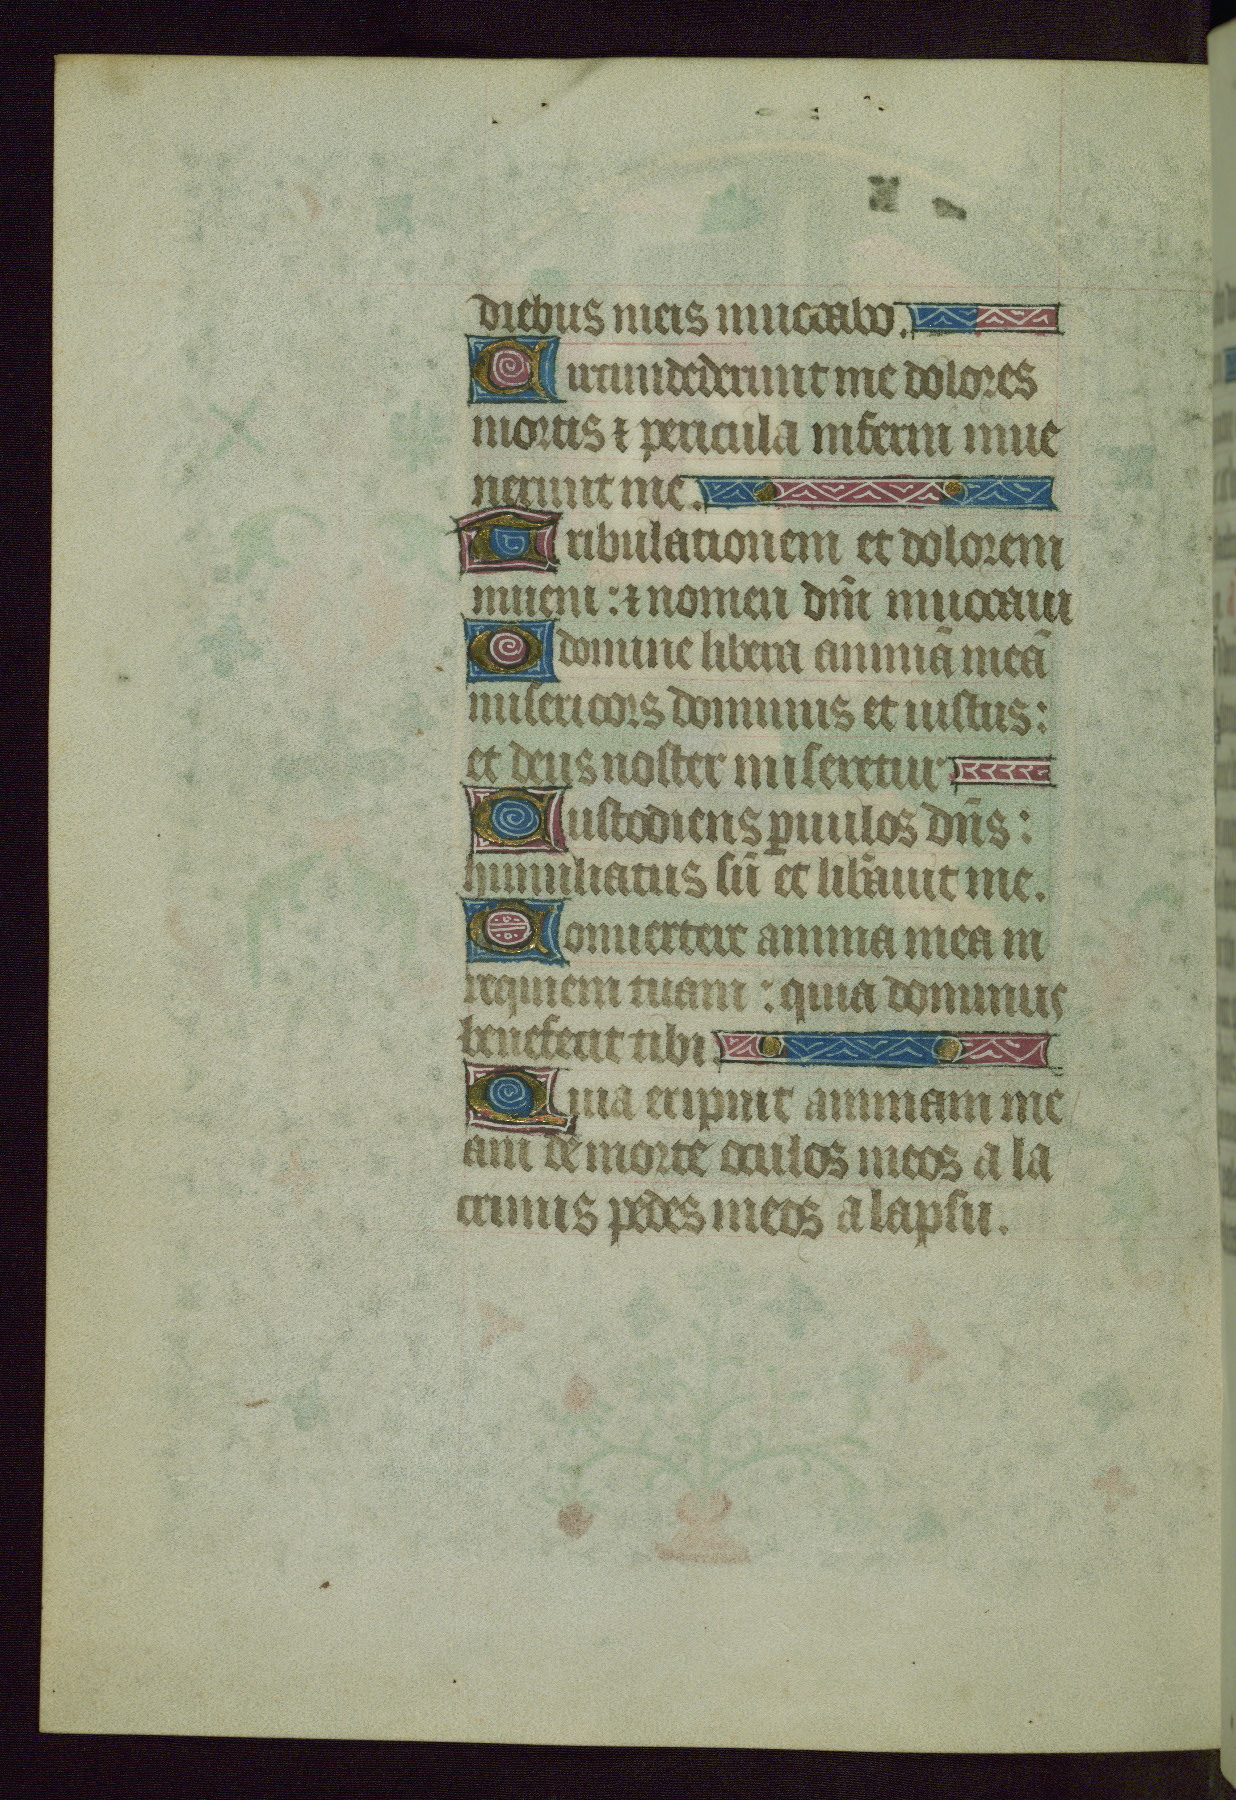 diebus meis inuocabo.
Circundederunt me dolores
mortis ⁊ pericula inferni inue
nerunt me.
Tribulationem et dolorem
inueni : ⁊ nomen dn̄i inuocaui
O domine libera animā meā
misericors dominus et iustus :
et deus noster miseretur
Custodiens ꝑuulos dn̄s :
humiliatus sū et lib̄auit me.
Conuertere anima mea in
requiem tuam : quia dominus
benefecit tibi.
Quia eripuit animam me
am de morte oculos meos a la
crimis pedes meos a lapsu.